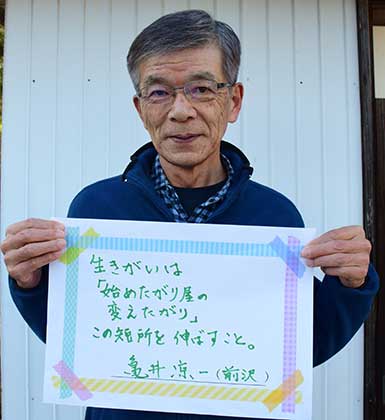 生きがいは
「始めたがり屋の
変えたがり」
この短所を伸ばすこと。
亀井涼一(前沢)